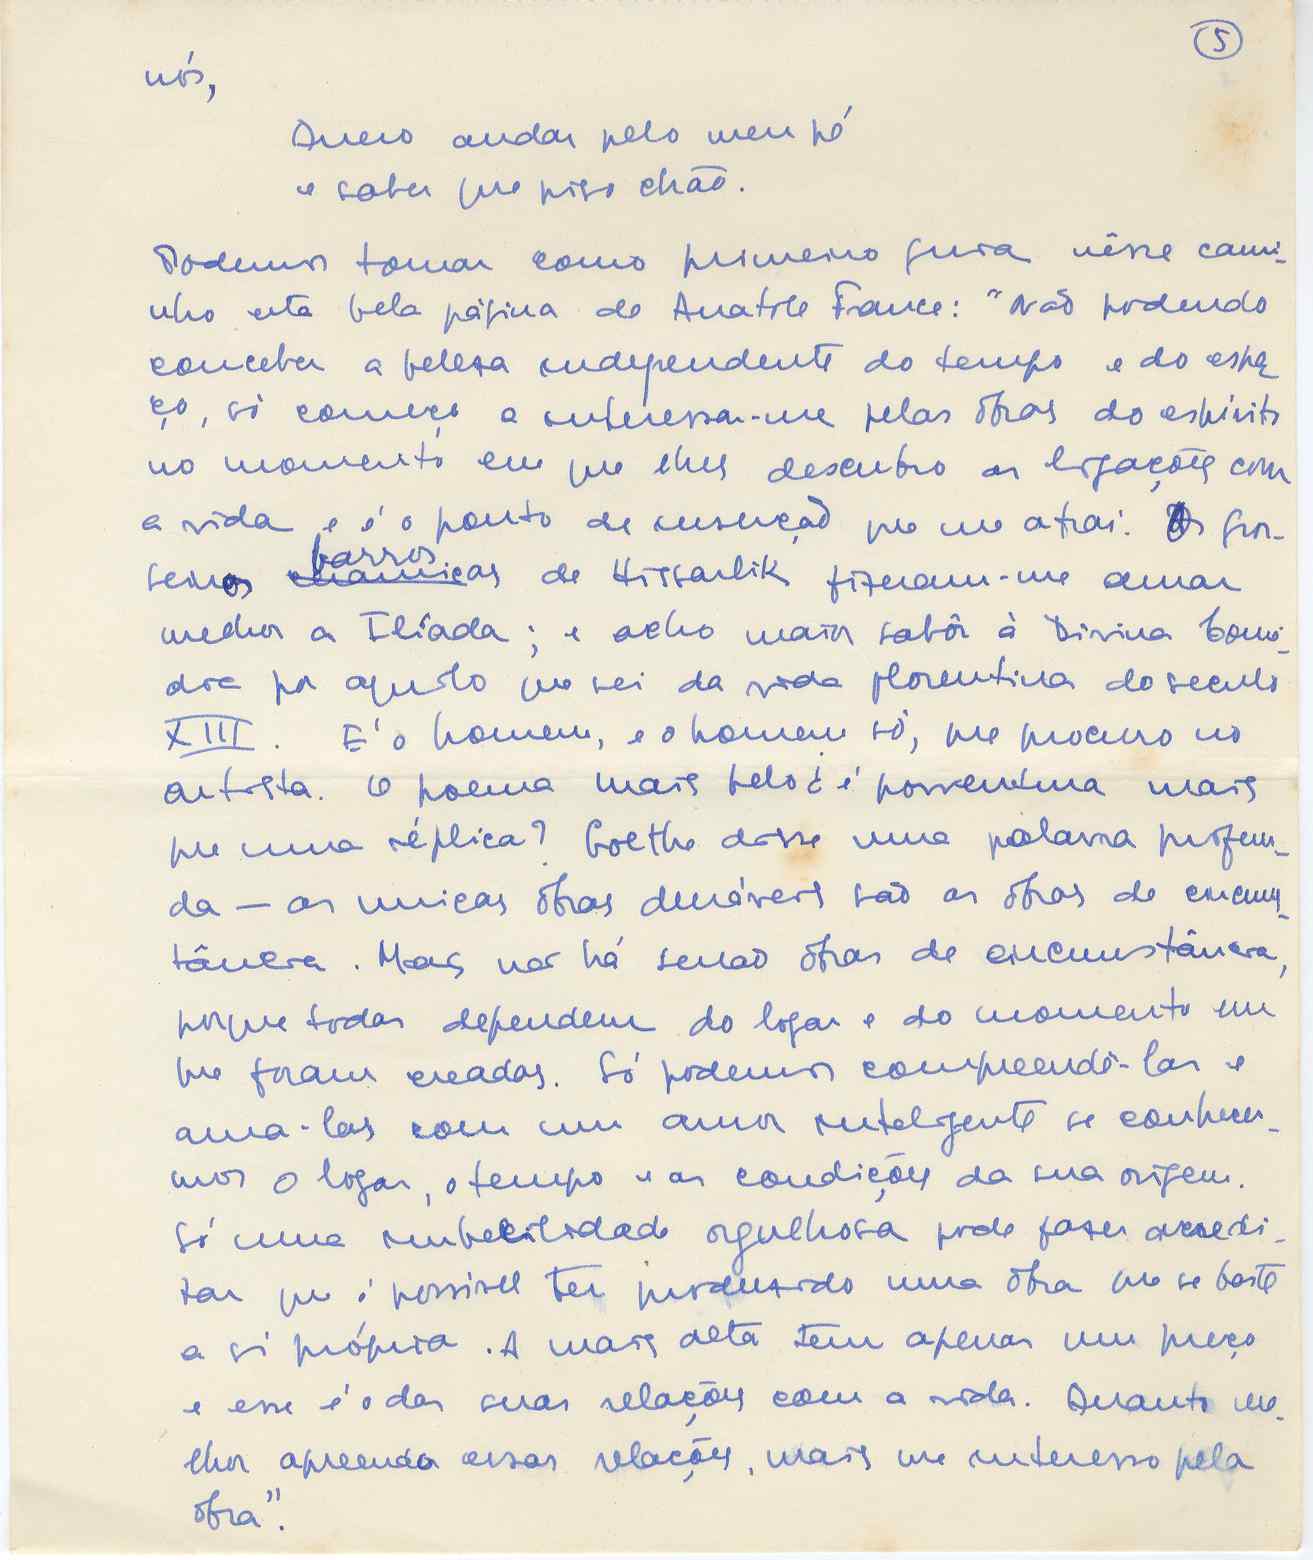 5
nós,
Quero andar pelo meu pé
e saber que piso chão.
Podemos tomar como primeiro guia nêsse cami-
nho esta bela página de Anatole France: "Não podendo
conceber a beleza independente do tempo e do espa
ço, só começo a interessar-me pelas obras do espírito
no momento em que lhes descubro as ligações com
a vida e é o ponto de inserção que me atrai. Os gros-
seiros barros de Hissarlik fizeram-me amar
melhor a Ilíada; e acho maior sabôr à Divina Comé-
dia por aquilo que sei da vida florentina do seculo
XIII. E' o homem, e o homem só, que procuro no
artista. O poema mais belo ¿ é porventura mais
que uma réplica? Goethe disse uma palavra profun-
da — as unicas obras duráveis são as obras de circuns-
tância. Mas não há senão obras de circunstância,
porque todas dependem do logar e do momento em
que foram creadas. Só podemos compreendê-las e
ama-las com um amor inteligente se conhecer-
mos o logar, o tempo e as condições da sua origem.
Só uma imbecilidade orgulhosa pode fazer acredi-
tar que é possivel ter produzido uma obra que se baste
a si própria. A mais alta tem apenas um preço
e esse é o das suas relações com a vida. Quanto me-
lhor apreendo essas relações, mais me interesso pela
obra".